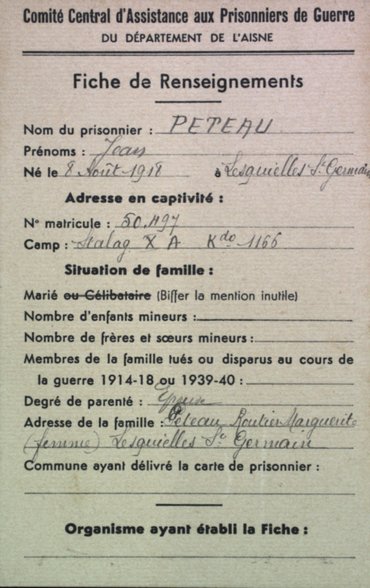 Comité Central d'Assistance aux Prisonniers de Guerre
DU DÉPARTEMENT DE L'AISNE
Fiche de Renseignements
Nom du prisonnier : PETEAU
Prénoms : Jean
Né le 8 Août 1918 à Lesquielles St Germain
Adresse en captivité :
N° matricule : 50.497
Camp : Stalag X A Kdo 1166
Situation de famille :
Marié ou Célibataire (Biffer la mention inutile)
Nombre d'enfants mineurs :
Nombre de frères et sœurs mineurs :
Membres de la famille tués ou disparus au cours de
la guerre 1914-18 ou 1939-40 :
Degré de parenté : Epouse
Adresse de la famille : Peteau Routier Marguerite
(femme) Lesquielles St Germain
Commune ayant délivré la carte de prisonnier :
Organisme ayant établi la Fiche :